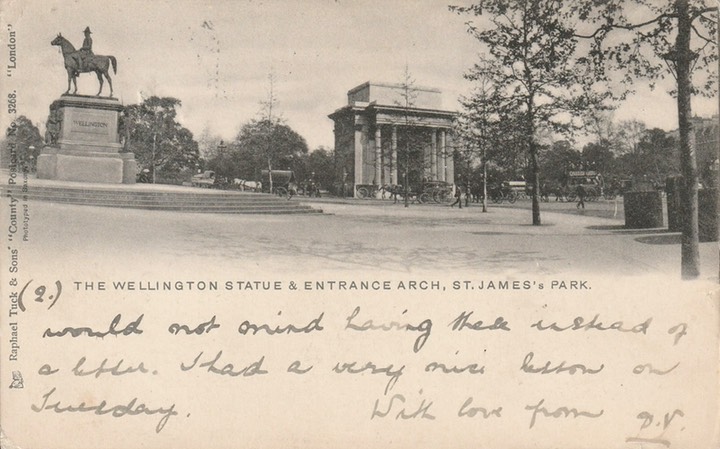 WELLINGTON
Raphael Tuck & Sons' "County" Postcard No 3268. "London"
(2.)
THE WELLINGTON STATUE & ENTRANCE ARCH, ST. JAMES's PARK.
would not mind having these instead of
a letter. I had a very nice lesson on
Tuesday.
With love from D.V.